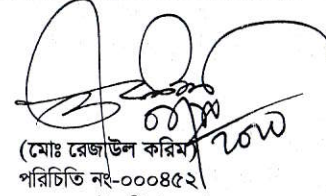 (মোঃ রেজাউল করিম)
পরিচিতি নং-০০০৪৫২